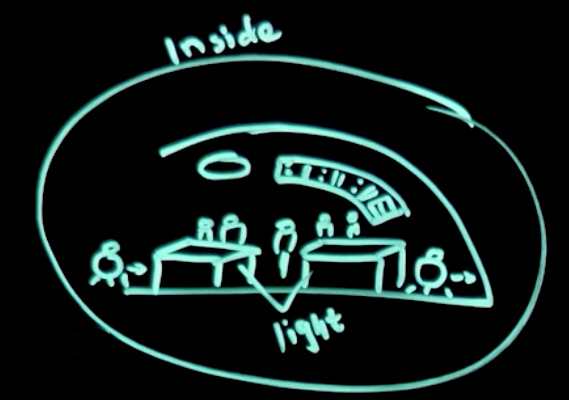 Inside
light